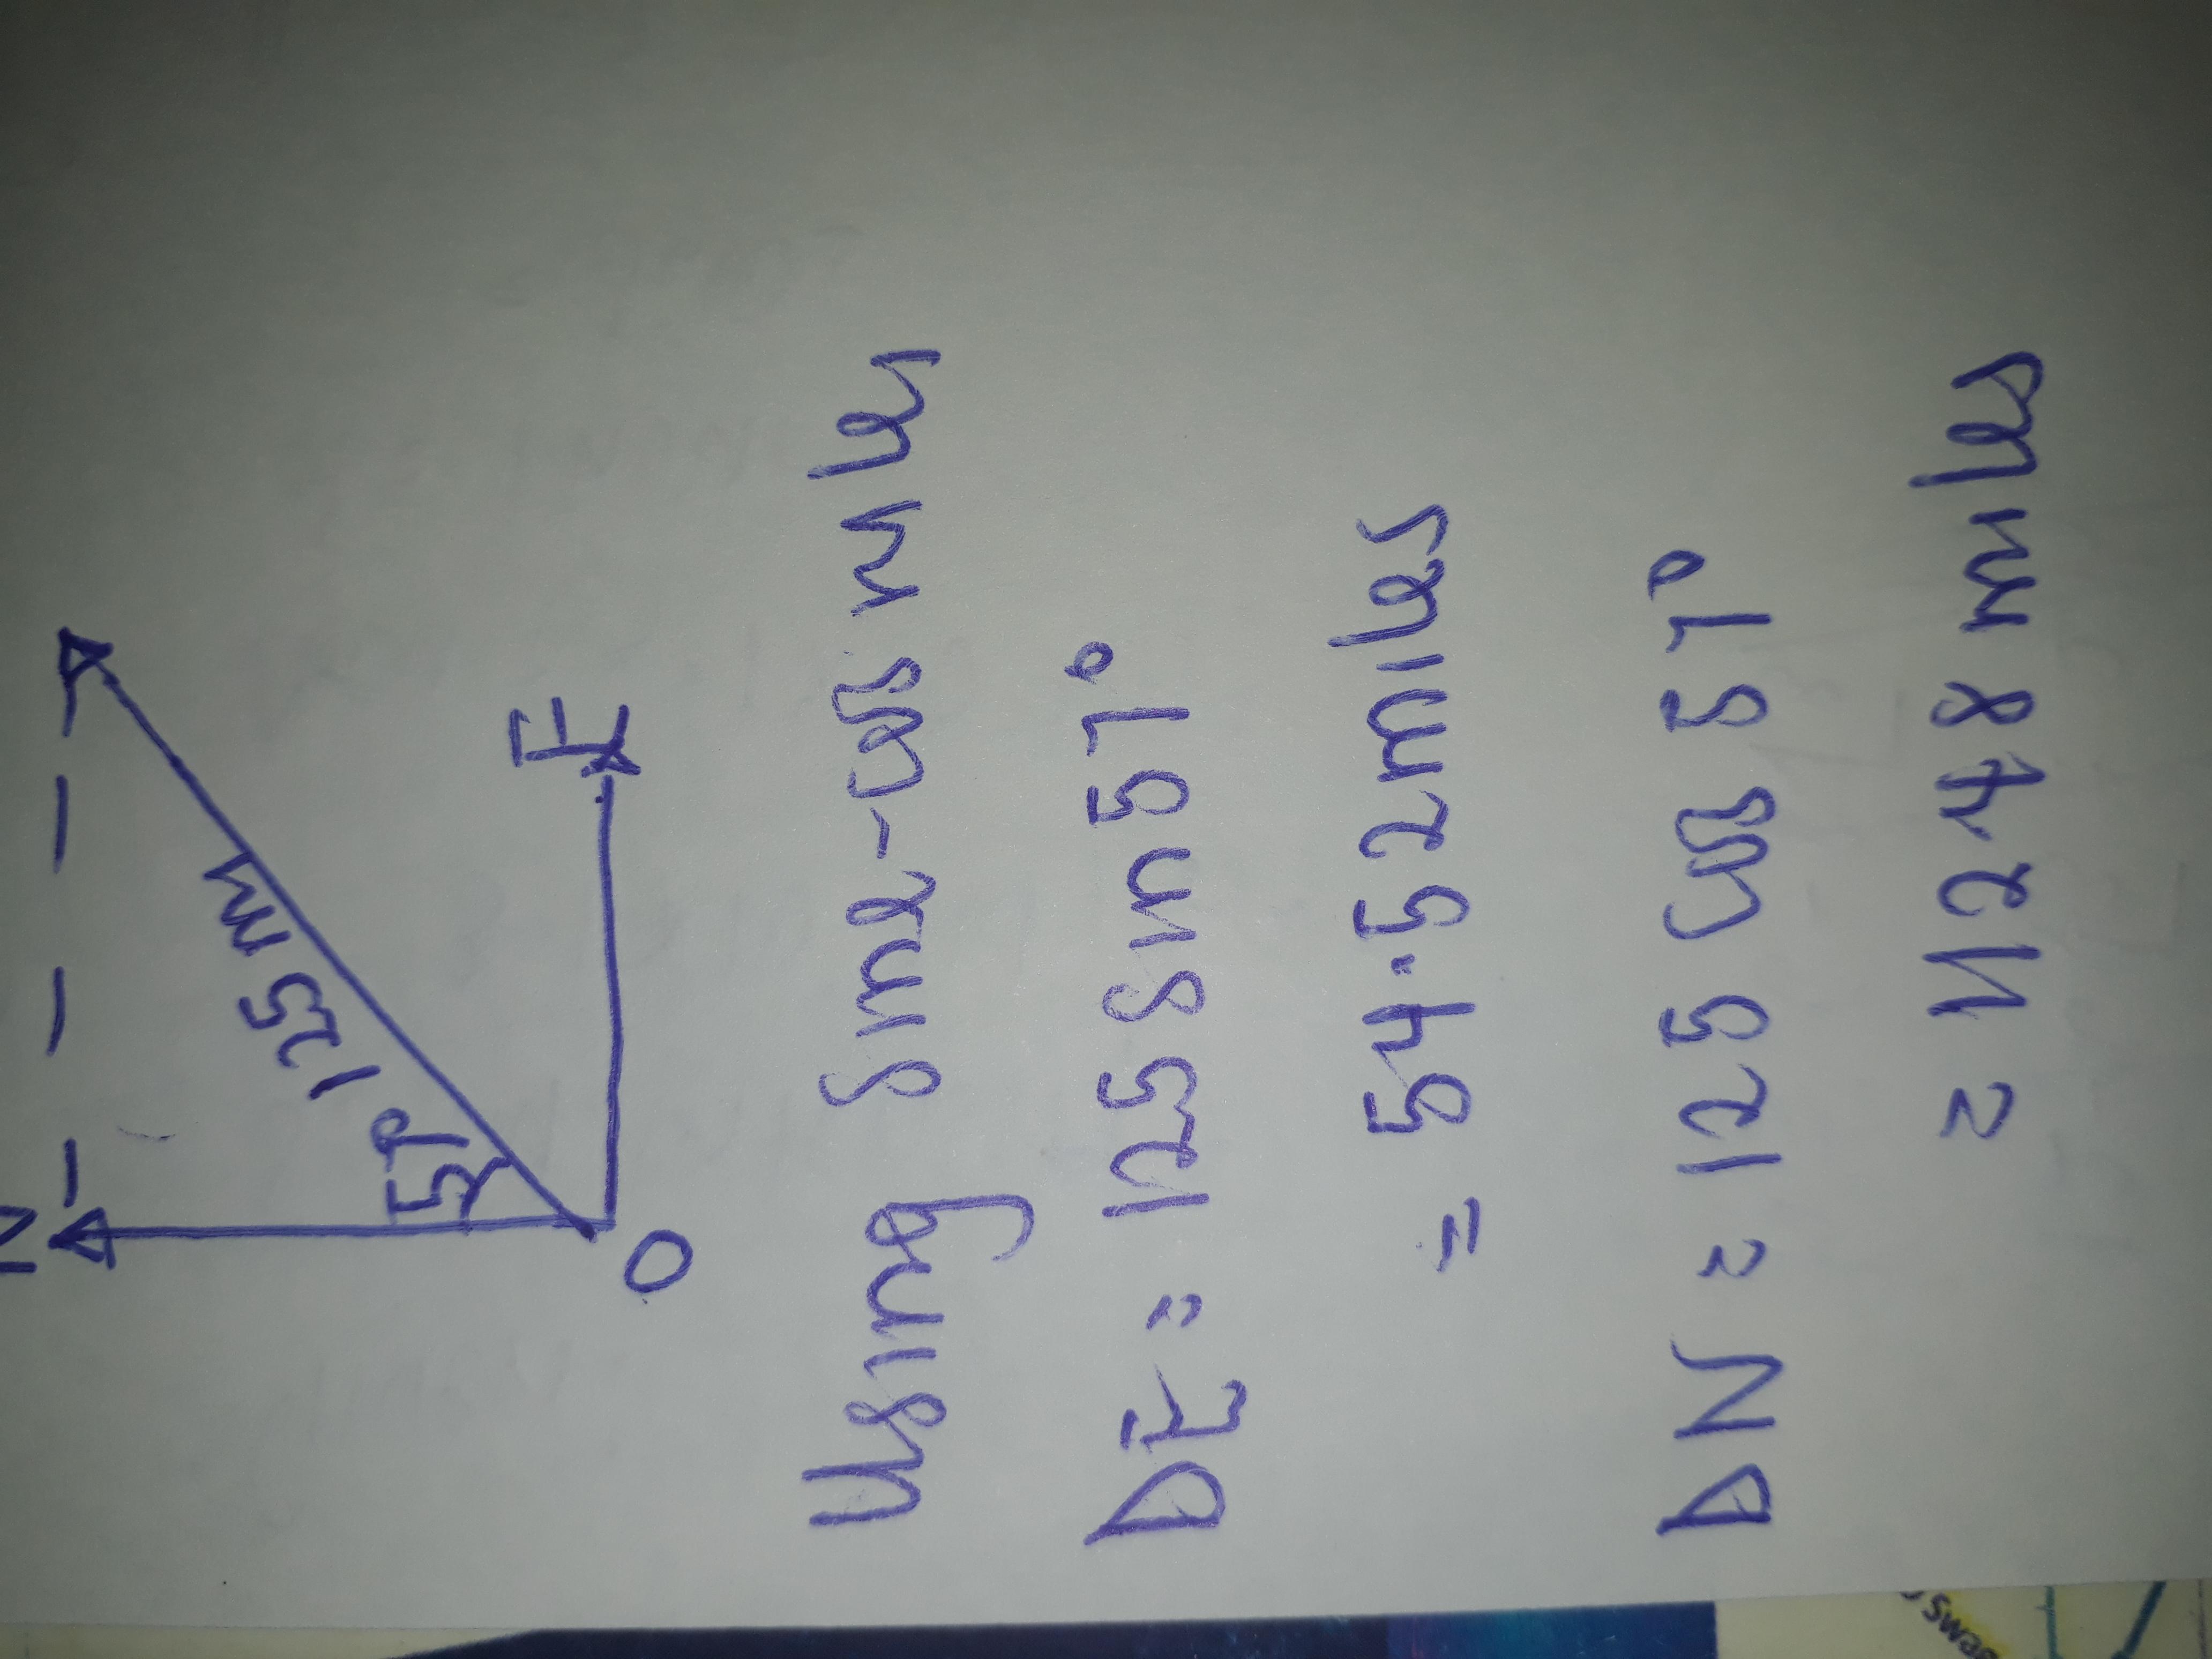 N
51°
125 m
O
E
Using Sine-Cos rules
DE = 125 Sin 51°
= 54.52 miles
DN = 125 Cos 51°
= 112.48 miles
Swa